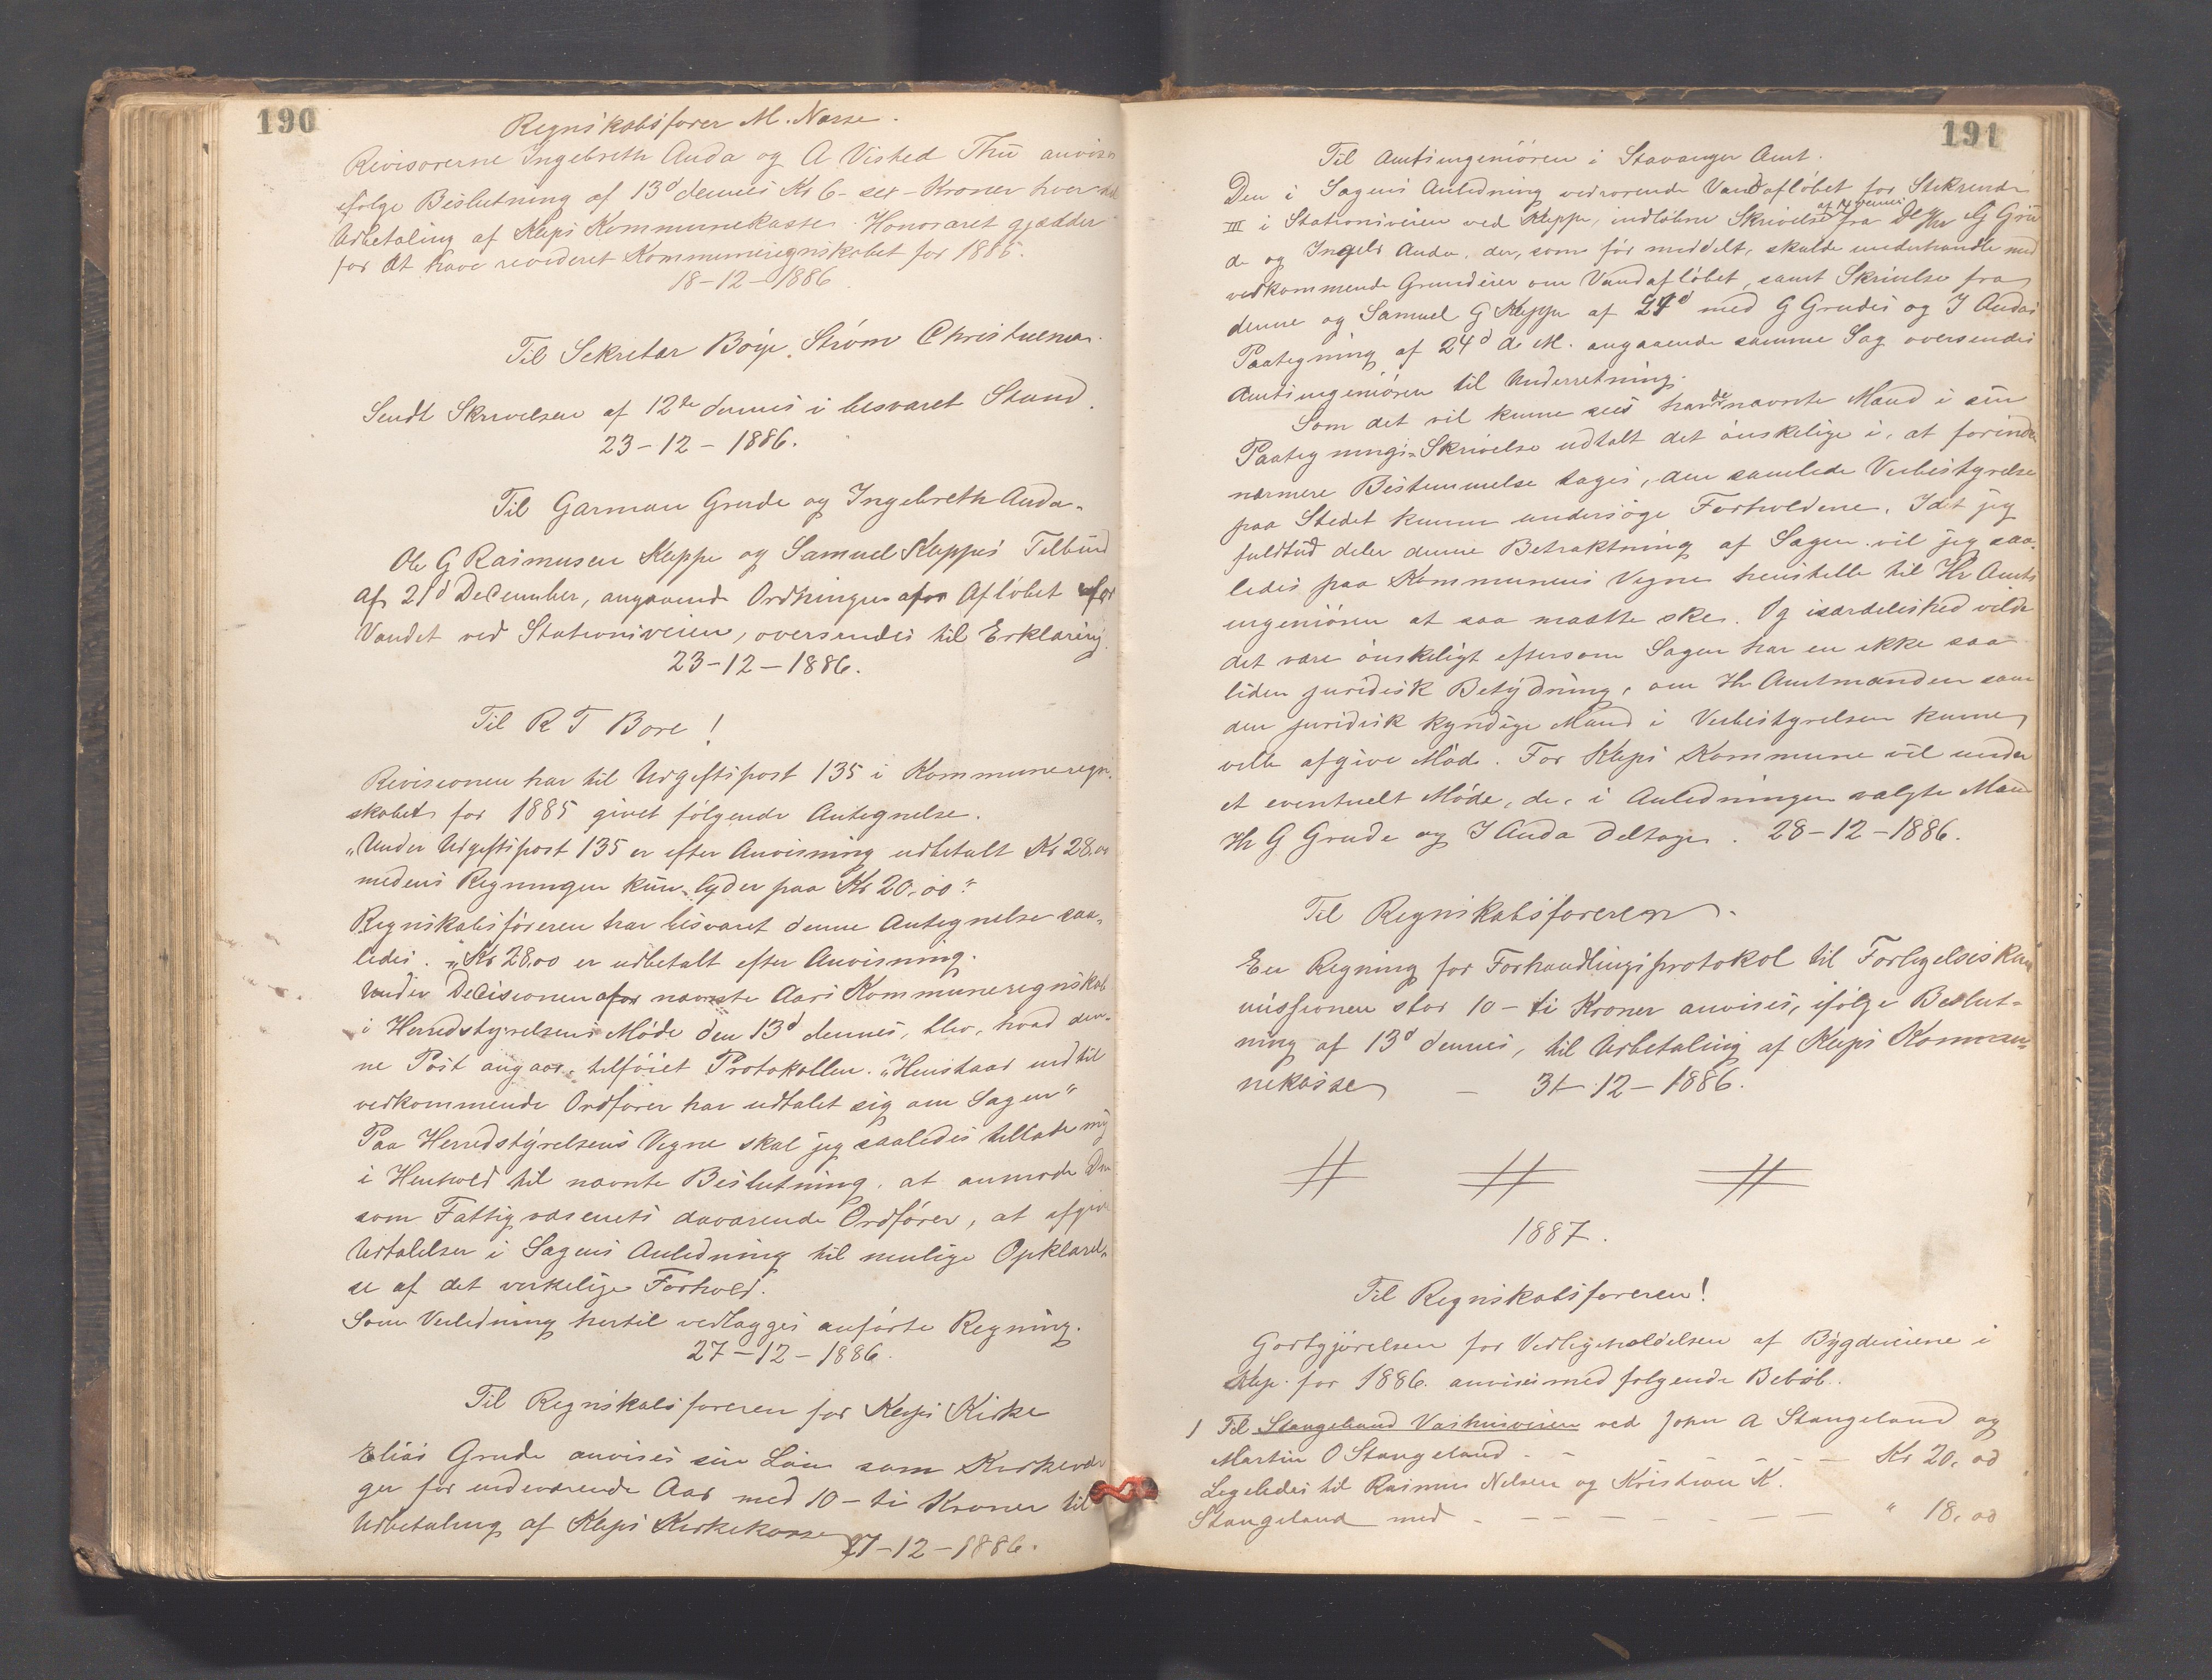 190
Regnskabsfører M. Næsse.
Revisorerne Ingebreth Anda og A Visted Thu anvises
ifølge Beslutning af 13d dennes Kr 6 - sex - Kroner hver
Udbetaling af Kleps Kommunekasse. Honoraret gjælder
for at have revideret Kommuneregnskabet for 1885.
18-12-1886
Til Sekretær Böije Strøm Christiania.
Sendt Skrivelsen af 12te dennes i besvaret Stand.
23-12-1886.
Til Garman Grude og Ingebreth Anda.
Ole G Rasmusen Kleppe og Samuel Kleppes Tilbud
af 21d December, angaaende Ordningen af Afløbet for
Vandet ved Stationsveien, oversendes til Erklæring.
23-12-1886.
Til R T Bore!
Revisionen har til Udgiftspost 135 i Kommuneregn-
skabet for 1885 givet følgende Antegnelse.
"Under Udgiftspost 135 er efter Anvisning udbetalt Kr 28,00
medens Regningen kun lyder paa Kr 20,00"
Regnskabsføreren har besvaret denne Antegnelse saa-
ledes. "Kr 28,00 er udbetalt efter Anvisning.
Under Decisionen af nævnte Aars Kommuneregnskab
i Herredstyrelsens Møde den 13d dennes, blev, hvad den-
ne Post angaar, tilføiet Protokollen. "Henstaar indtil
vedkommende Ordfører har udtalet sig om Sagen"
Paa Herredstyrelsens Vegne skal jeg saaledes tillade mig
i Henhold til nævnte Beslutning, at anmode Dem
som Fattigvæsenets daværende Ordfører, at afgive
Udtalelser i Sagens Anledning til mulige Opklarel-
se af det virkelige Forhold.
Som Veiledning hertil vedlægges anførte Regning.
27-12-1886.
Til Regnskabsføreren for Kleps Kirke
Elias Grude anvises sin Løn som Kirkevær-
ger for indeværende Aar med 10 - ti Kroner til
Udbetaling af Kleps Kirkekasse 27-12-1886.
191
Til Amtsingeniøren i Stavanger Amt.
Den i Sagens Anledning vedrørende Vandafløbet for Stikrende
III i Stationsveien ved Kleppe, indløbne Skrivelse fra DHr G Gru-
de og Ingebr Anda, der, som før meddelt, skulde underhandle med
vedkommende Grundeier om Vandafløbet, samt Skrivelse fra
denne og Samuel G Kleppe af 21d med G Grudes og I Andas
Paategning af 24d d. M. angaaende samme Sag oversendes
Amtsingeniøren til Underretning.
Som det vil kunne sees har de nævnte Mænd i sin
Paategnings-Skrivelse udtalt det ønskelige i, at forinden
nærmere Bestemmelse tages, den samlede Veibestyrelse
paa Stedet kunne undersøge Forholdene. Idet jeg
fuldtud deler denne Betraktning af Sagen vil jeg saa-
ledes paa Kommunens Vegne henstille til Hr Amts
ingeniøren at saa maatte ske. Og isærdeleshed vilde
det være ønskeligt eftersom Sagen har en ikke saa
liden juridisk Betydning, om Hr Amtmanden som
den juridisk kyndige Mand i Veibestyrelsen kunne
ville afgive Møde. For Kleps Kommune vil under
et eventuelt Møde, de, i Anledningen valgte Mænd
Hr G Grude og I Anda deltage. 28-12-1886.
Til Regnskabsføreren.
En Regning for Forhandlingsprotokol til Forligelseskom
missionen stor 10 - ti Kroner anvises, ifølge Beslut-
ning af 13d dennes, til Udbetaling af Kleps Kommu-
nekasse - 31-12-1886.
1887.
Til Regnskabsføreren!
Godtgjørelsen for Vedligeholdelsen af Bygdeveiene i
Klep for 1886 anvises med følgende Beløb.
1 Til Stangeland Vashusveien ved John A Stangeland og
Martin O Stangeland - - - - - Kr 20,00
Ligeledes til Rasmus Nilsen og Kristian K.
Stangeland med - - - - - - - " 18,00